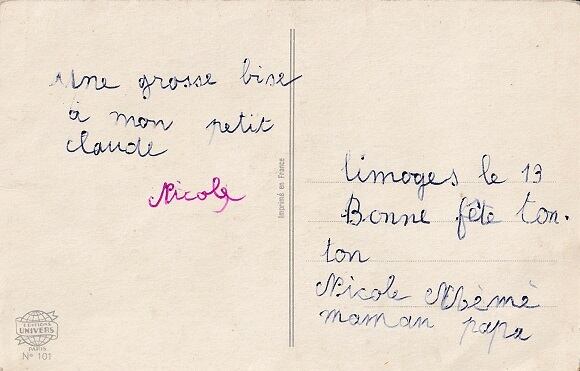 Une grosse bise
à mon petit
claude
Nicole
Imprimé en France
limoges le 13
Bonne fête ton-
ton
Nicole Mémé
maman papa
EDITIONS
UNIVERS
PARIS
N° 101